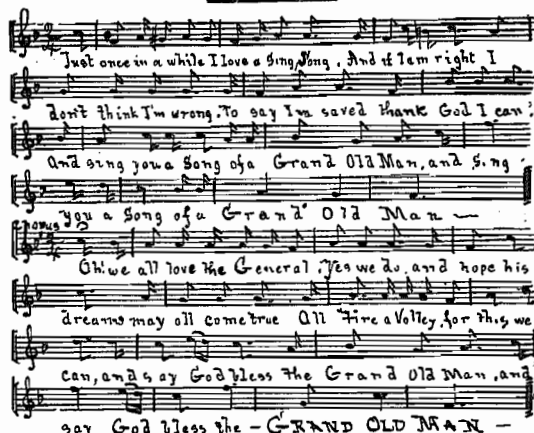 Just once in a while I love a Sing Song. And if I am right I
don't think I'm wrong. To say I'm saved thank God I can:
And sing you a Song of a Grand Old Man, and Sing
you a Song of a Grand Old Man —
Chorus
Oh! we all love the General. Yes we do. and hope his
dreams may all come true All Fire a Volley, for this we
can, and say God bless the Grand Old Man, and
say God bless the - GRAND OLD MAN —